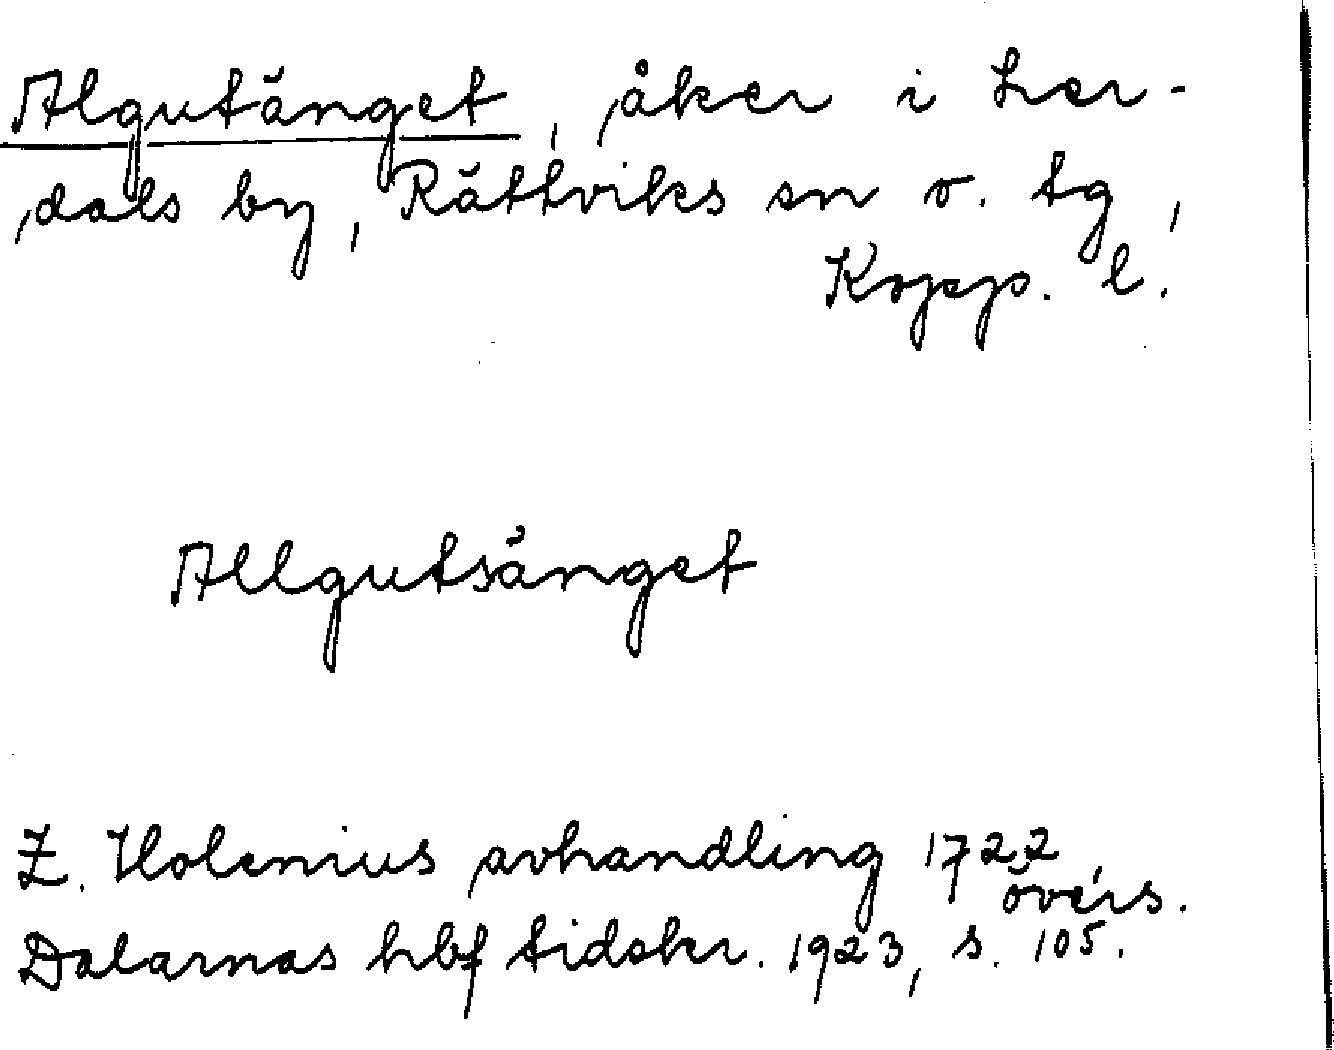 Algutänget, åker i Her-
dals by, Rättviks sn o. tg,
Kopp. l.
Allgutsänget
Z. Holenius avhandling 1722,
övers.
Dalarnas hbf tidskr. 1923, s. 105.